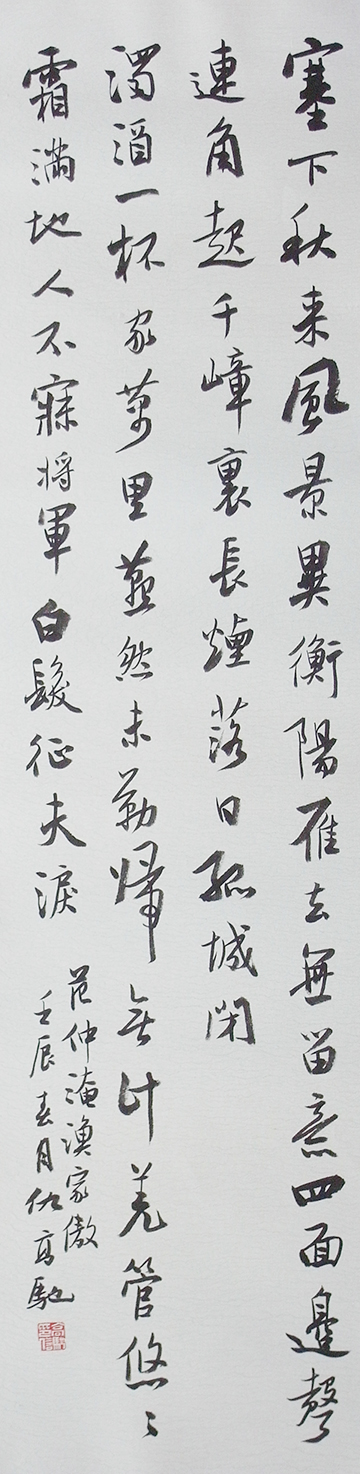 塞下秋来風景異衡陽雁去無留意四面邊聲
連角起千嶂裏長煙落日孤城閉
濁酒一杯家萬里燕然未勒帰無計羌管悠〻
霜滿地人不寐将軍白髮征夫淚
范仲淹漁家傲
壬辰春月仇高馳